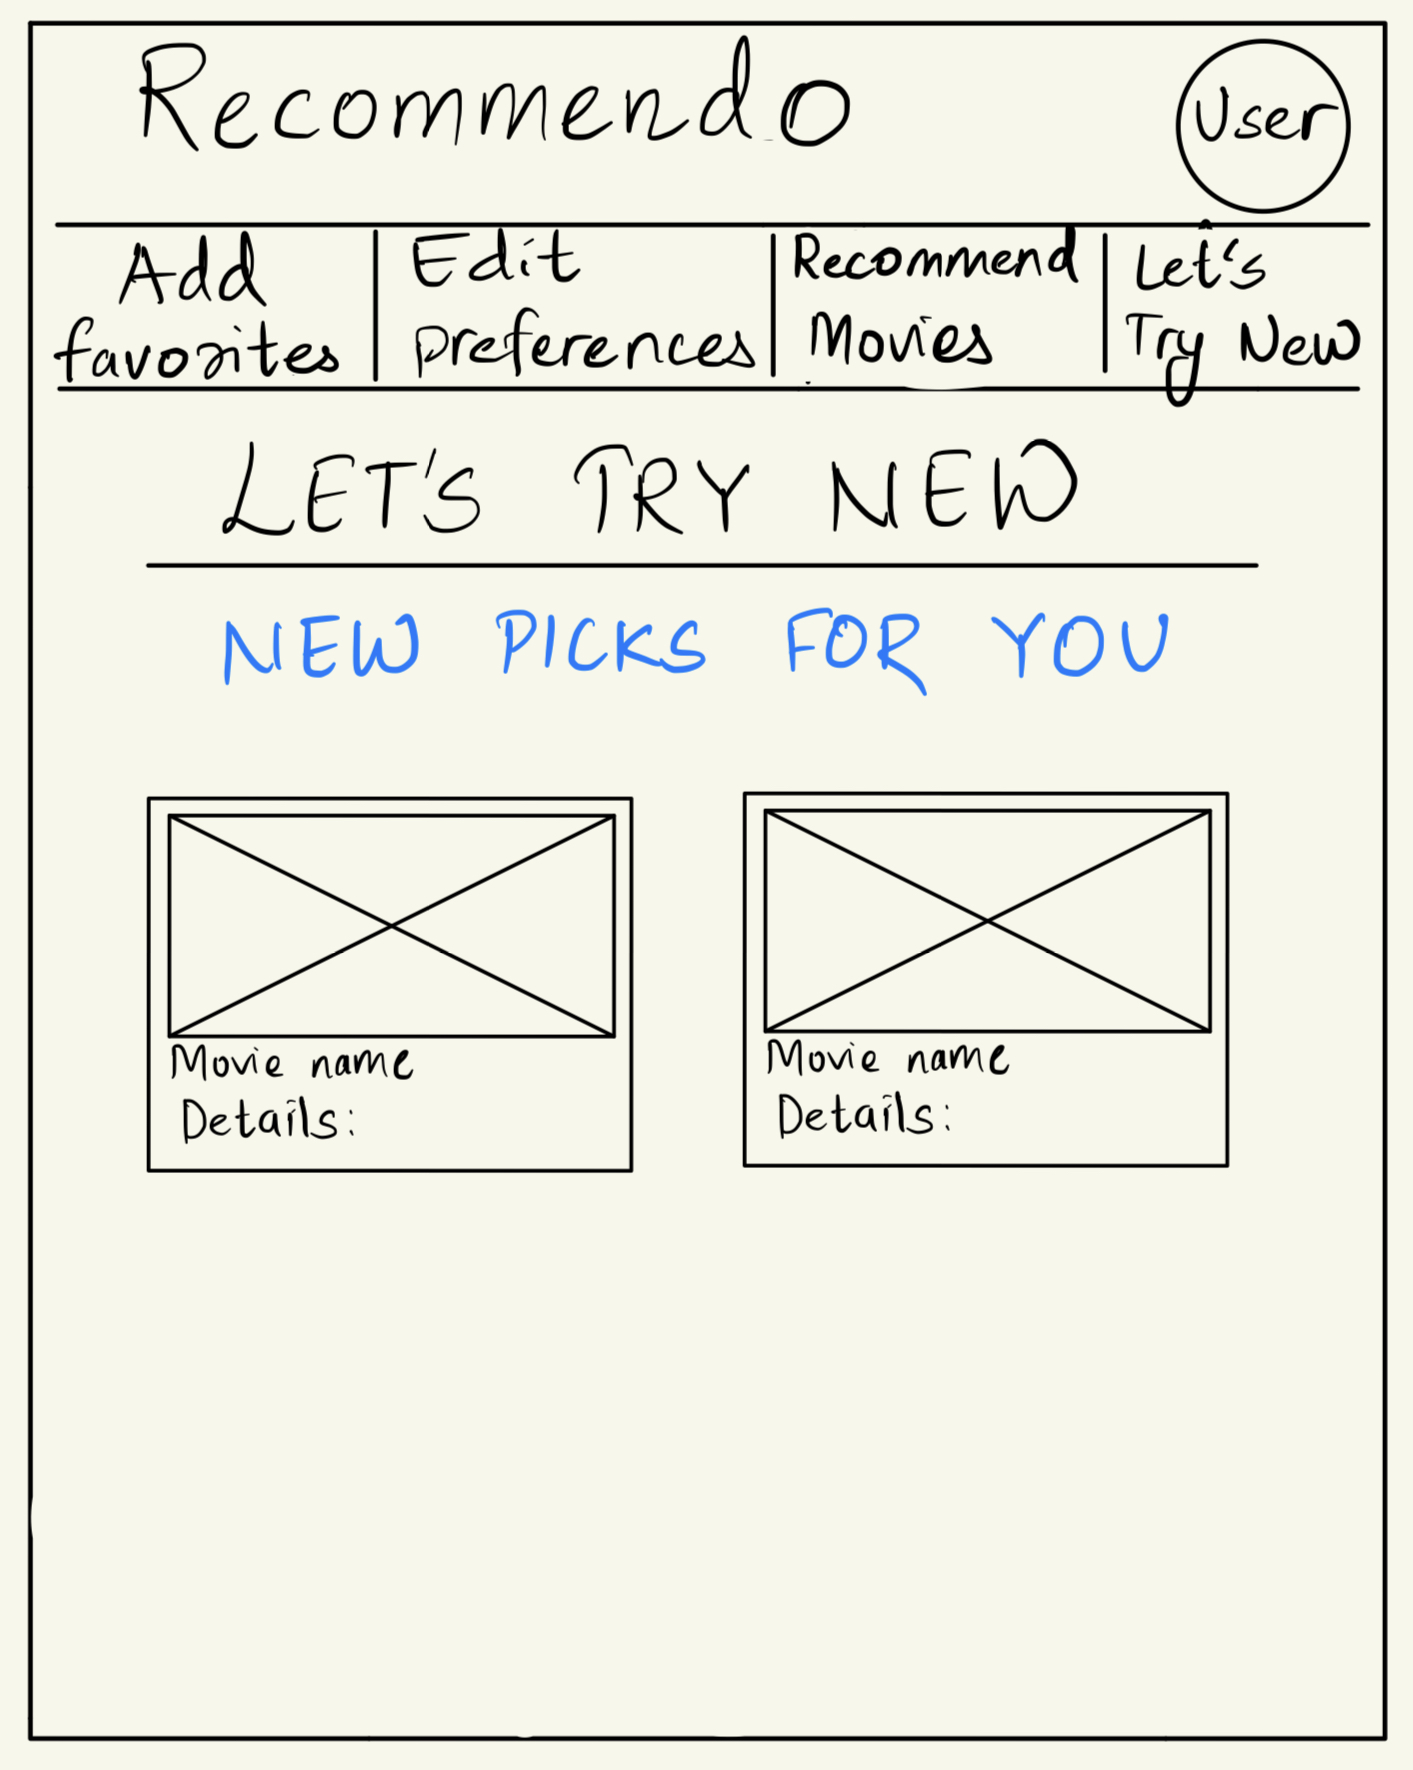 Recommendo
User
Add
favorites
Edit
Preferences
Recommend
Movies
Let's
Try New
LET'S TRY NEW
NEW PICKS FOR YOU
Movie name
Details:
Movie name
Details: